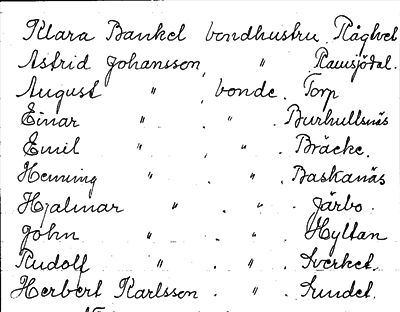 Klara Bankel bondhustru. Råglvet
Astrid Johansson, " Ramsjödal.
August " , bonde. Torp
Einar " . " . Burhullsnäs
Emil " , " . Bräcke.
Henning " . " . Baskanäs
Hjalmar " . " . Järbo.
John " . " . Hyltan
Rudolf " . " . Sverket.
Herbert Karlsson . " . Sundet.